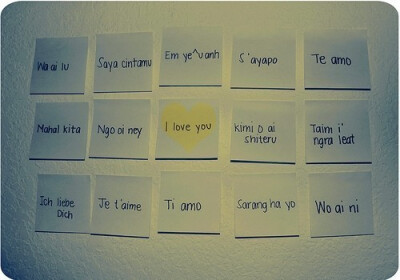 Wa ai lu
Saya cintamu
Em ye^u anh
S'ayapo
Te amo
Mahal kita
Ngo oi ney
I love you
kimi o ai
shiteru
Taim i'
ngra leat
Ich liebe
Dich
Je t'aime
Ti amo
Sarang ha yo
Wo ai ni